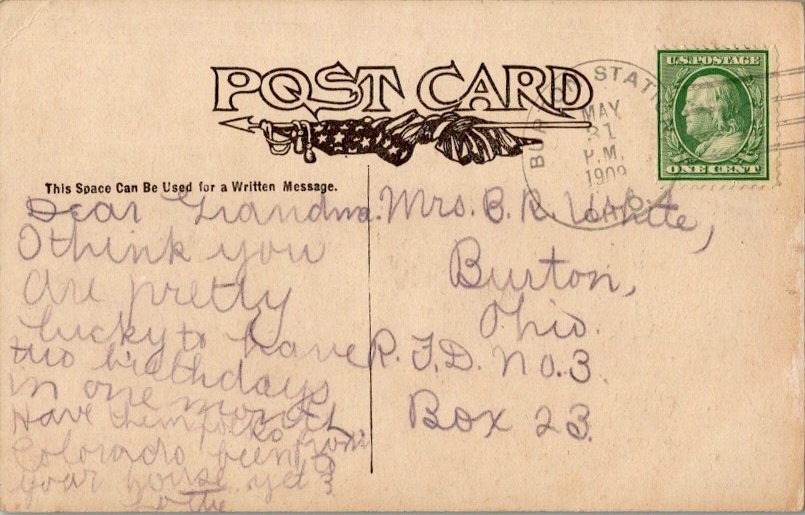 POST CARD
U.S. POSTAGE
ONE CENT
STATI
MAY
31
P.M.
1909
This Space Can Be Used for a Written Message.
Dear Grandma.
I think you
are pretty
lucky to have
two birthdays
in one month
Have them folks from
Colorado been to
your house yet?
Lottie
Mrs. B. R. White,
Burton,
Ohio.
R. F. D. No. 3.
Box 23.